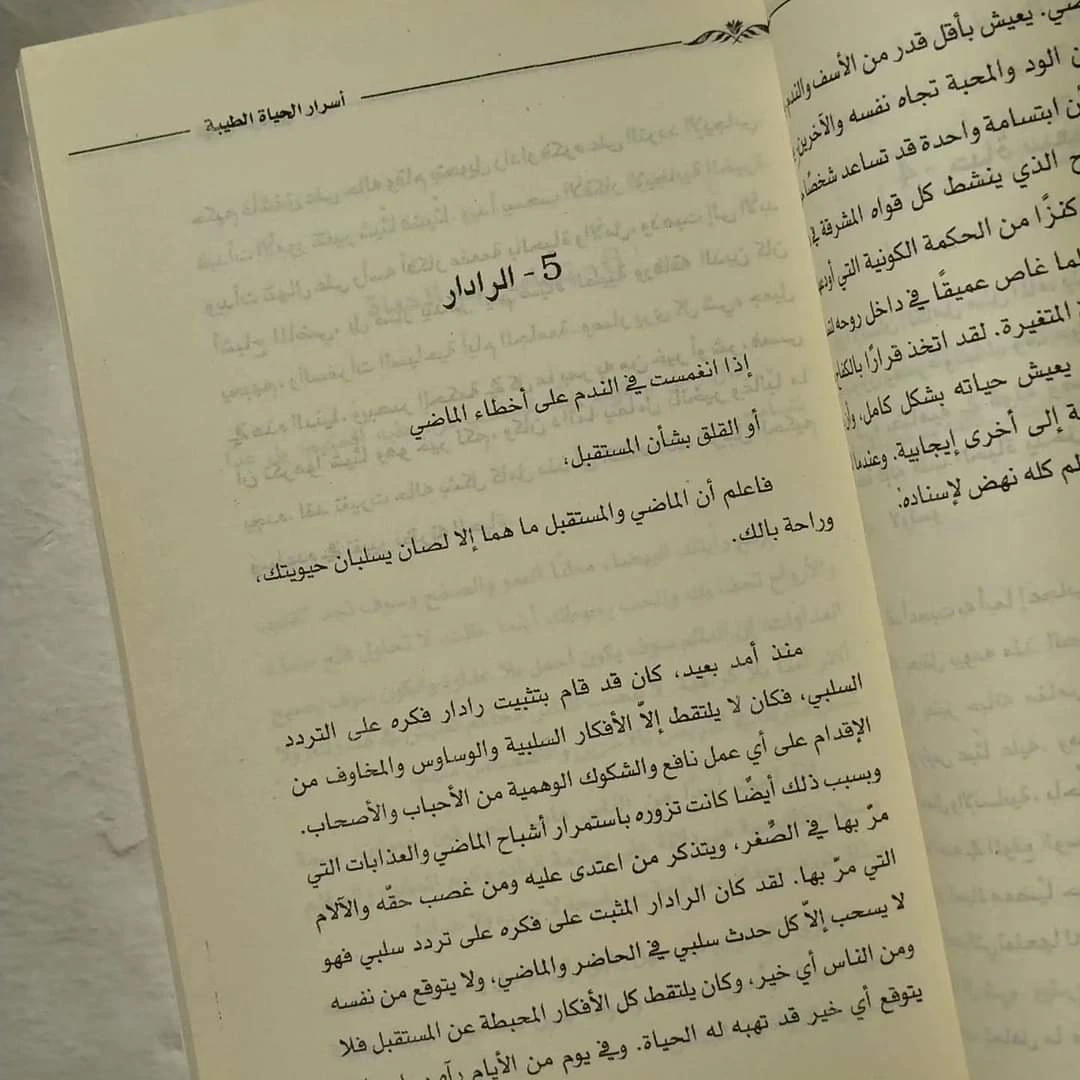 ضي. يعيش بأقل قدر من الأسف والندم
ن الود والمحبة تجاه نفسه والآخرين
ن ابتسامة واحدة قد تساعد شخصًا
ح الذي ينشط كل قواه المشرقة في
كنزًا من الحكمة الكونية التي
لما غاص عميقًا في داخل روحه
المتغيرة. لقد اتخذ قرارًا بالكفاح
يعيش حياته بشكل كامل، وأن
ة إلى أخرى إيجابية. وعندما
لم كله نهض لإسناده.
أسرار الحياة الطيبة
5 - الرادار
إذا انغمست في الندم على أخطاء الماضي
أو القلق بشأن المستقبل،
فاعلم أن الماضي والمستقبل ما هما إلا لصان يسلبان حيويتك،
وراحة بالك.
منذ أمد بعيد، كان قد قام بتثبيت رادار فكره على التردد
السلبي، فكان لا يلتقط إلاّ الأفكار السلبية والوساوس والمخاوف من
الإقدام على أي عمل نافع والشكوك الوهمية من الأحباب والأصحاب.
وبسبب ذلك أيضًا كانت تزوره باستمرار أشباح الماضي والعذابات التي
مرّ بها في الصِّغر، ويتذكر من اعتدى عليه ومن غصب حقّه والآلام
التي مرّ بها. لقد كان الرادار المثبت على فكره على تردد سلبي فهو
لا يسحب إلاّ كل حدث سلبي في الحاضر والماضي، ولا يتوقع من نفسه
ومن الناس أي خير، وكان يلتقط كل الأفكار المحبطة عن المستقبل فلا
يتوقع أي خير قد تهبه له الحياة. وفي يوم من الأيام